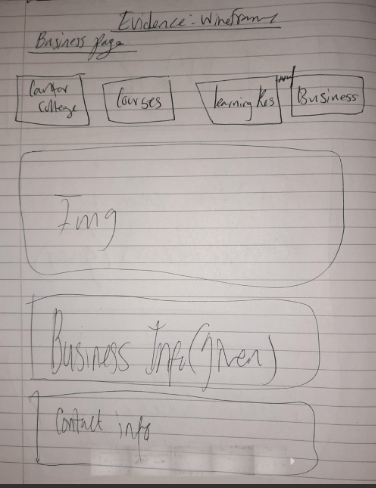 Evidence: Wireframe
Business page
Cantor College
Courses
Learning Res
Business
Img
Business Info(given)
Contact info